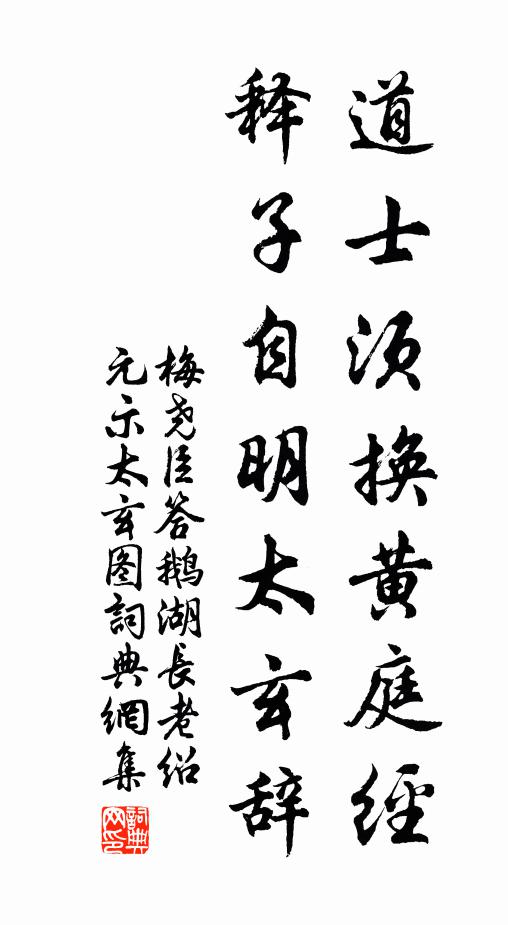 道士须换黄庭經
释子自明太玄辞
梅尧臣答鹅湖長老紹
元示太玄图詞典網集
詞典网印